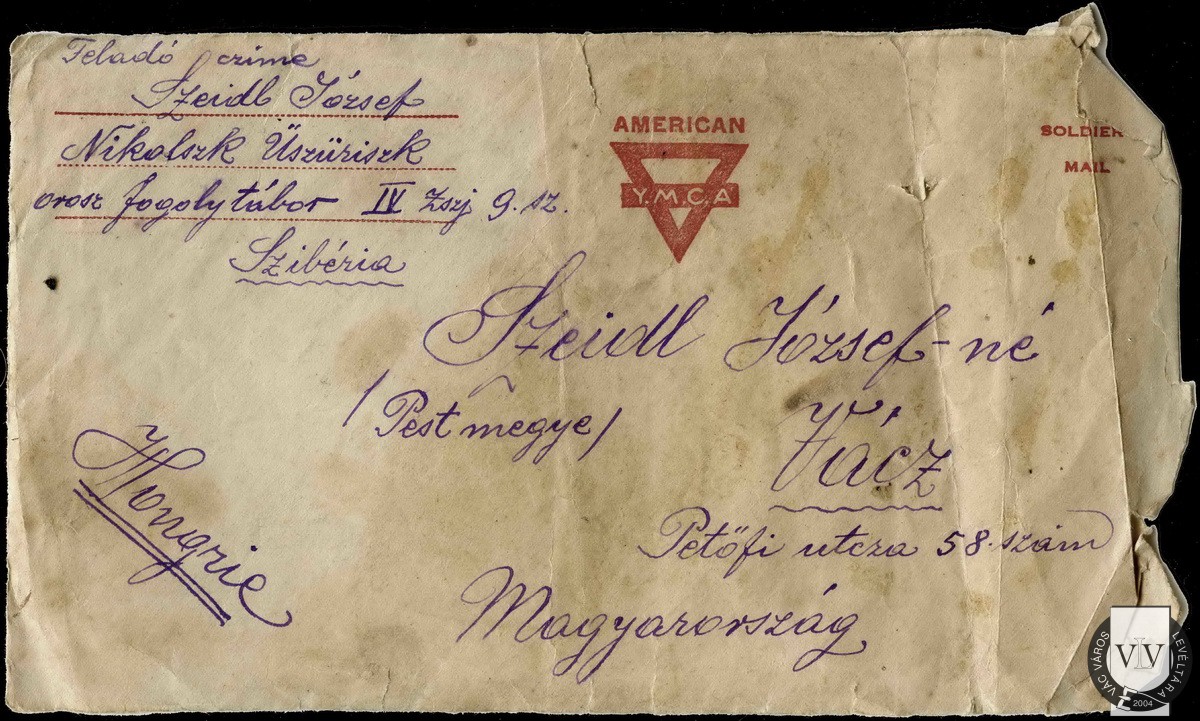 Feladó czime
Szeidl József
Nikolszk Üszüriszk
orosz fogolytábor IV Zszj 9. sz.
Szibéria
AMERICAN
Y.M.C.A
SOLDIER
MAIL
Szeidl József-né
/Pest megye/
Vácz
Hongrie
Petőfi utcza 58. szám
Magyarország
VÁC VÁROS LEVÉLTÁRA
VLV
2004